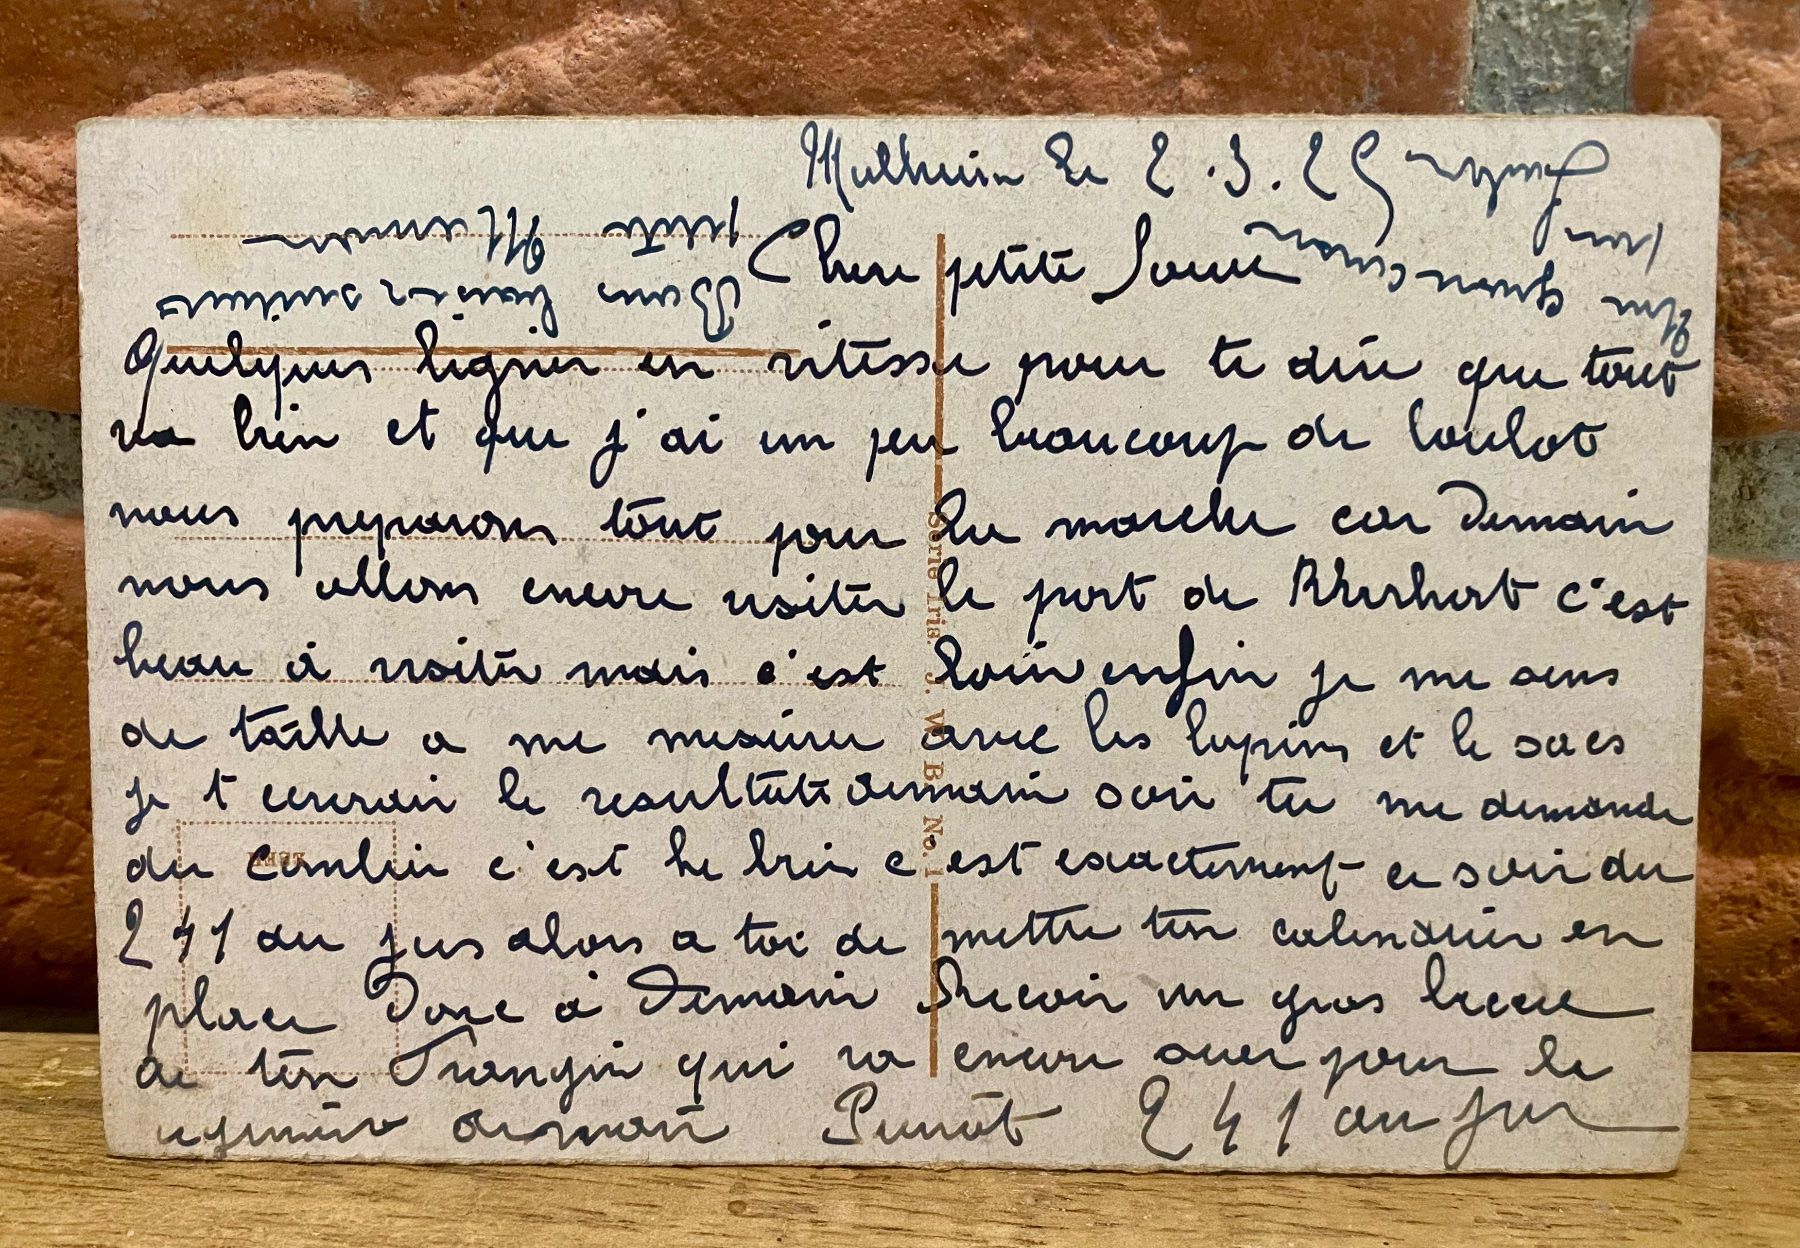 Mulheim le 2.3.25
Chere petite Soeur
Quelques lignes en vitesse pour te dire que tout
va bien et que j'ai un peu beaucoup de boulot
nous preparons tout pour la marche car Demain
nous allons encore visiter le port de c'est
beau à visiter mais c'est loin enfin je me sens
de taille a me mesurer avec les lapins et le sacs
je t ecrirai le resultat demain soir tu me demande
du combien c'est le bien c est exactement ce soir du
241 au jus alors a toi de mettre ton calendrier en
place Donc à Demain Recoir un gros becou
de ton Frangin qui va encore suer pour le
demain 241 au jus
Bons baisers surtout
petite Maman
Serie Iris. J. W. B No. 1